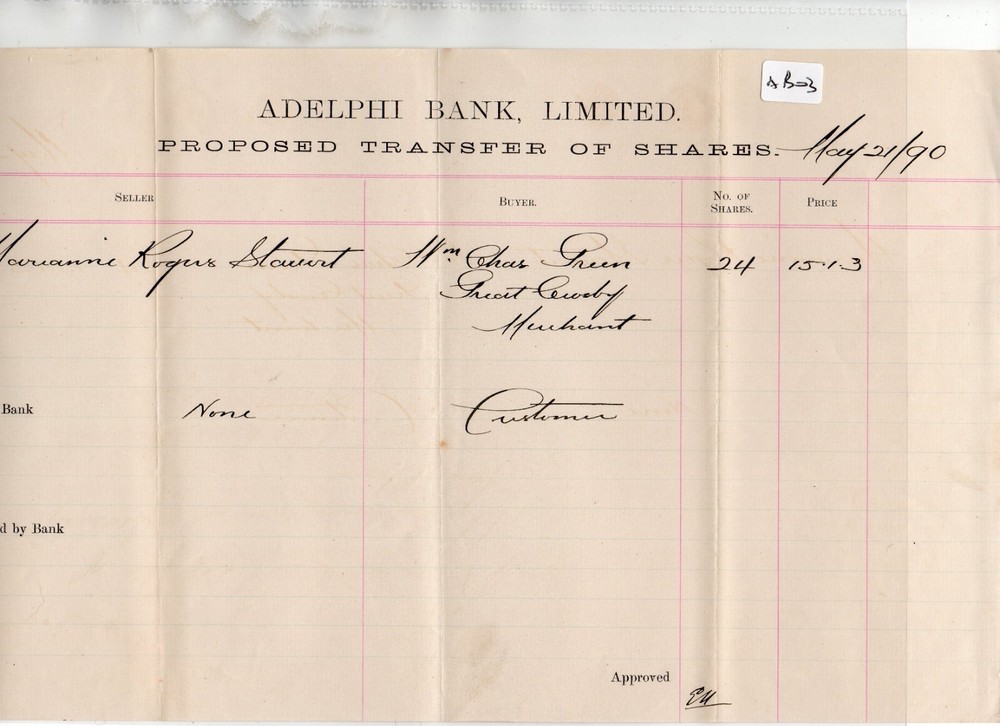 AB=3
ADELPHI BANK, LIMITED.
PROPOSED TRANSFER OF SHARES. May 21/90
SELLER BUYER. NO. OF SHARES. PRICE
Marianne Rogers Stewart Wm Chas Green 24 15.1.3
Great Crosby
Merchant
Bank None Customer
d by Bank
Approved